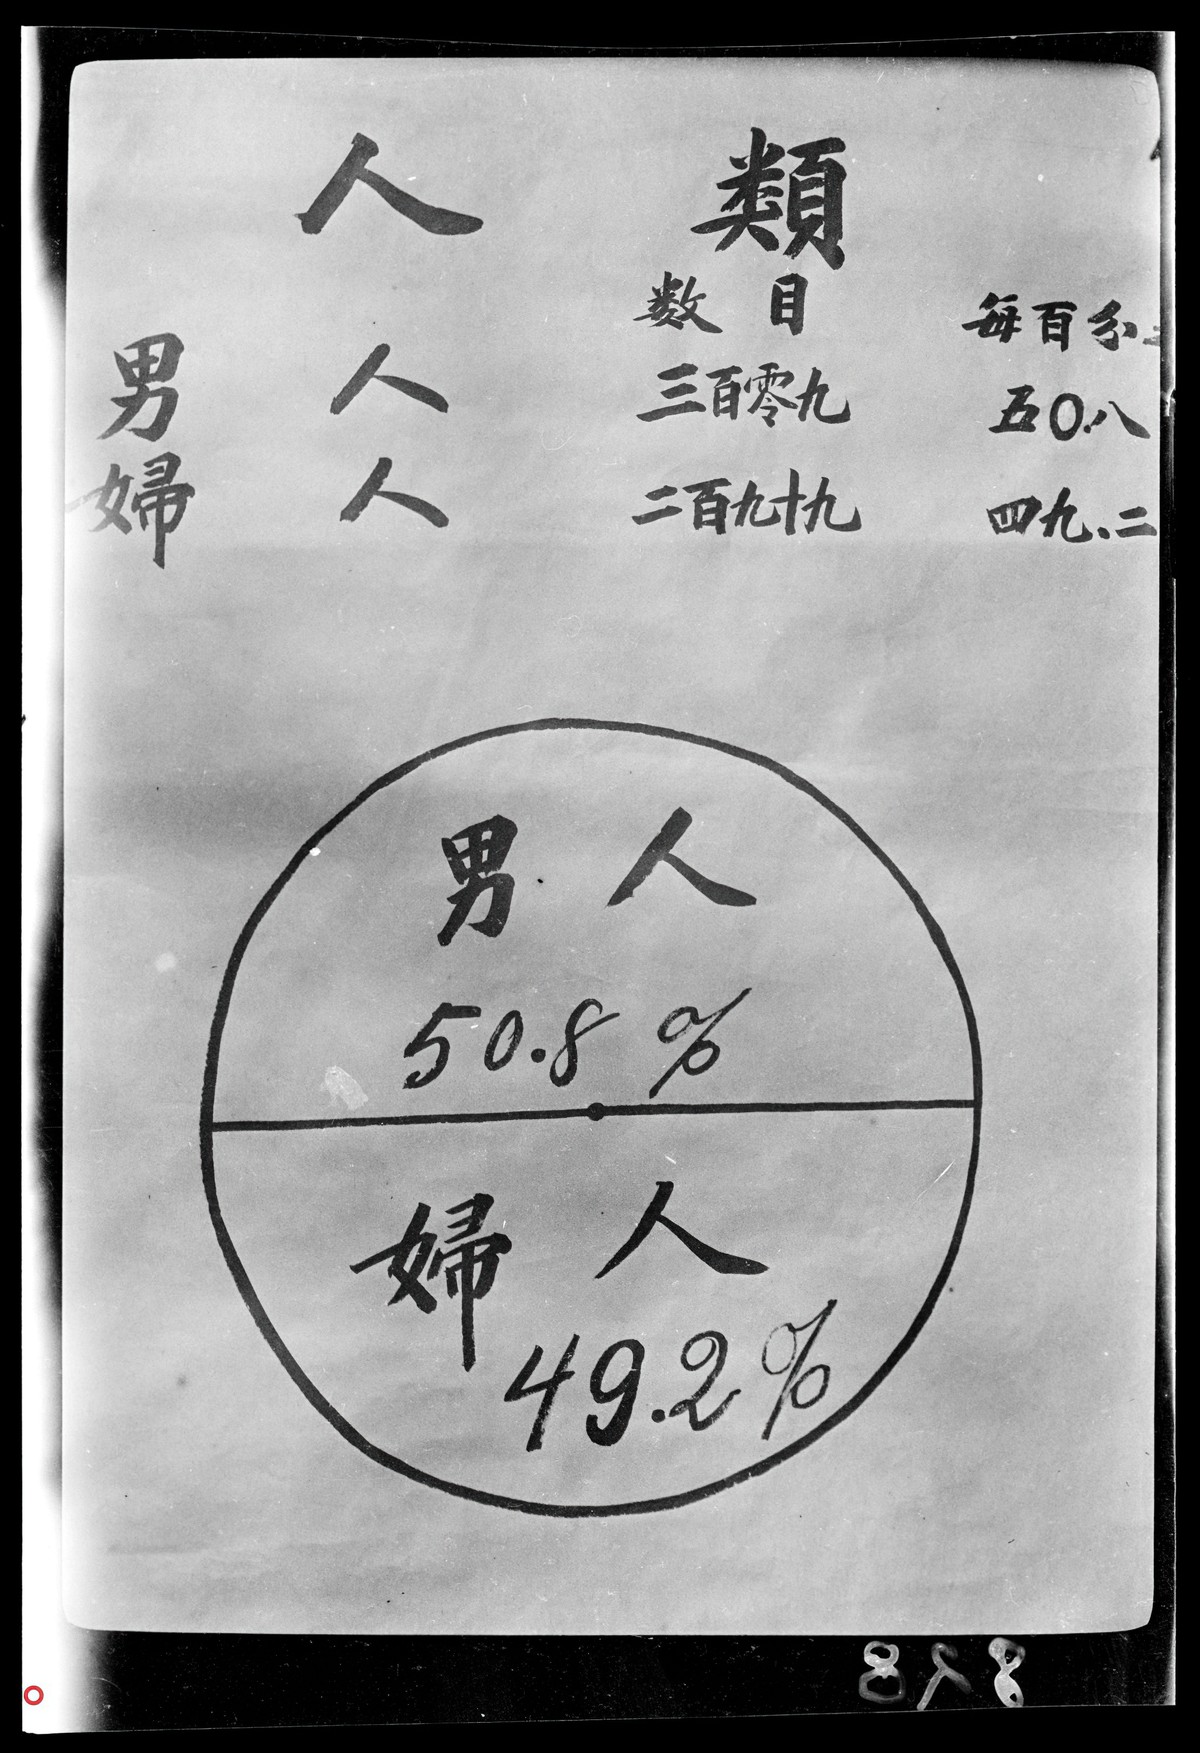 人 類
数目 每百分
男人 三百零九 五0.八
婦人 二百九十九 四九.二
男人
50.8%
婦人
49.2%